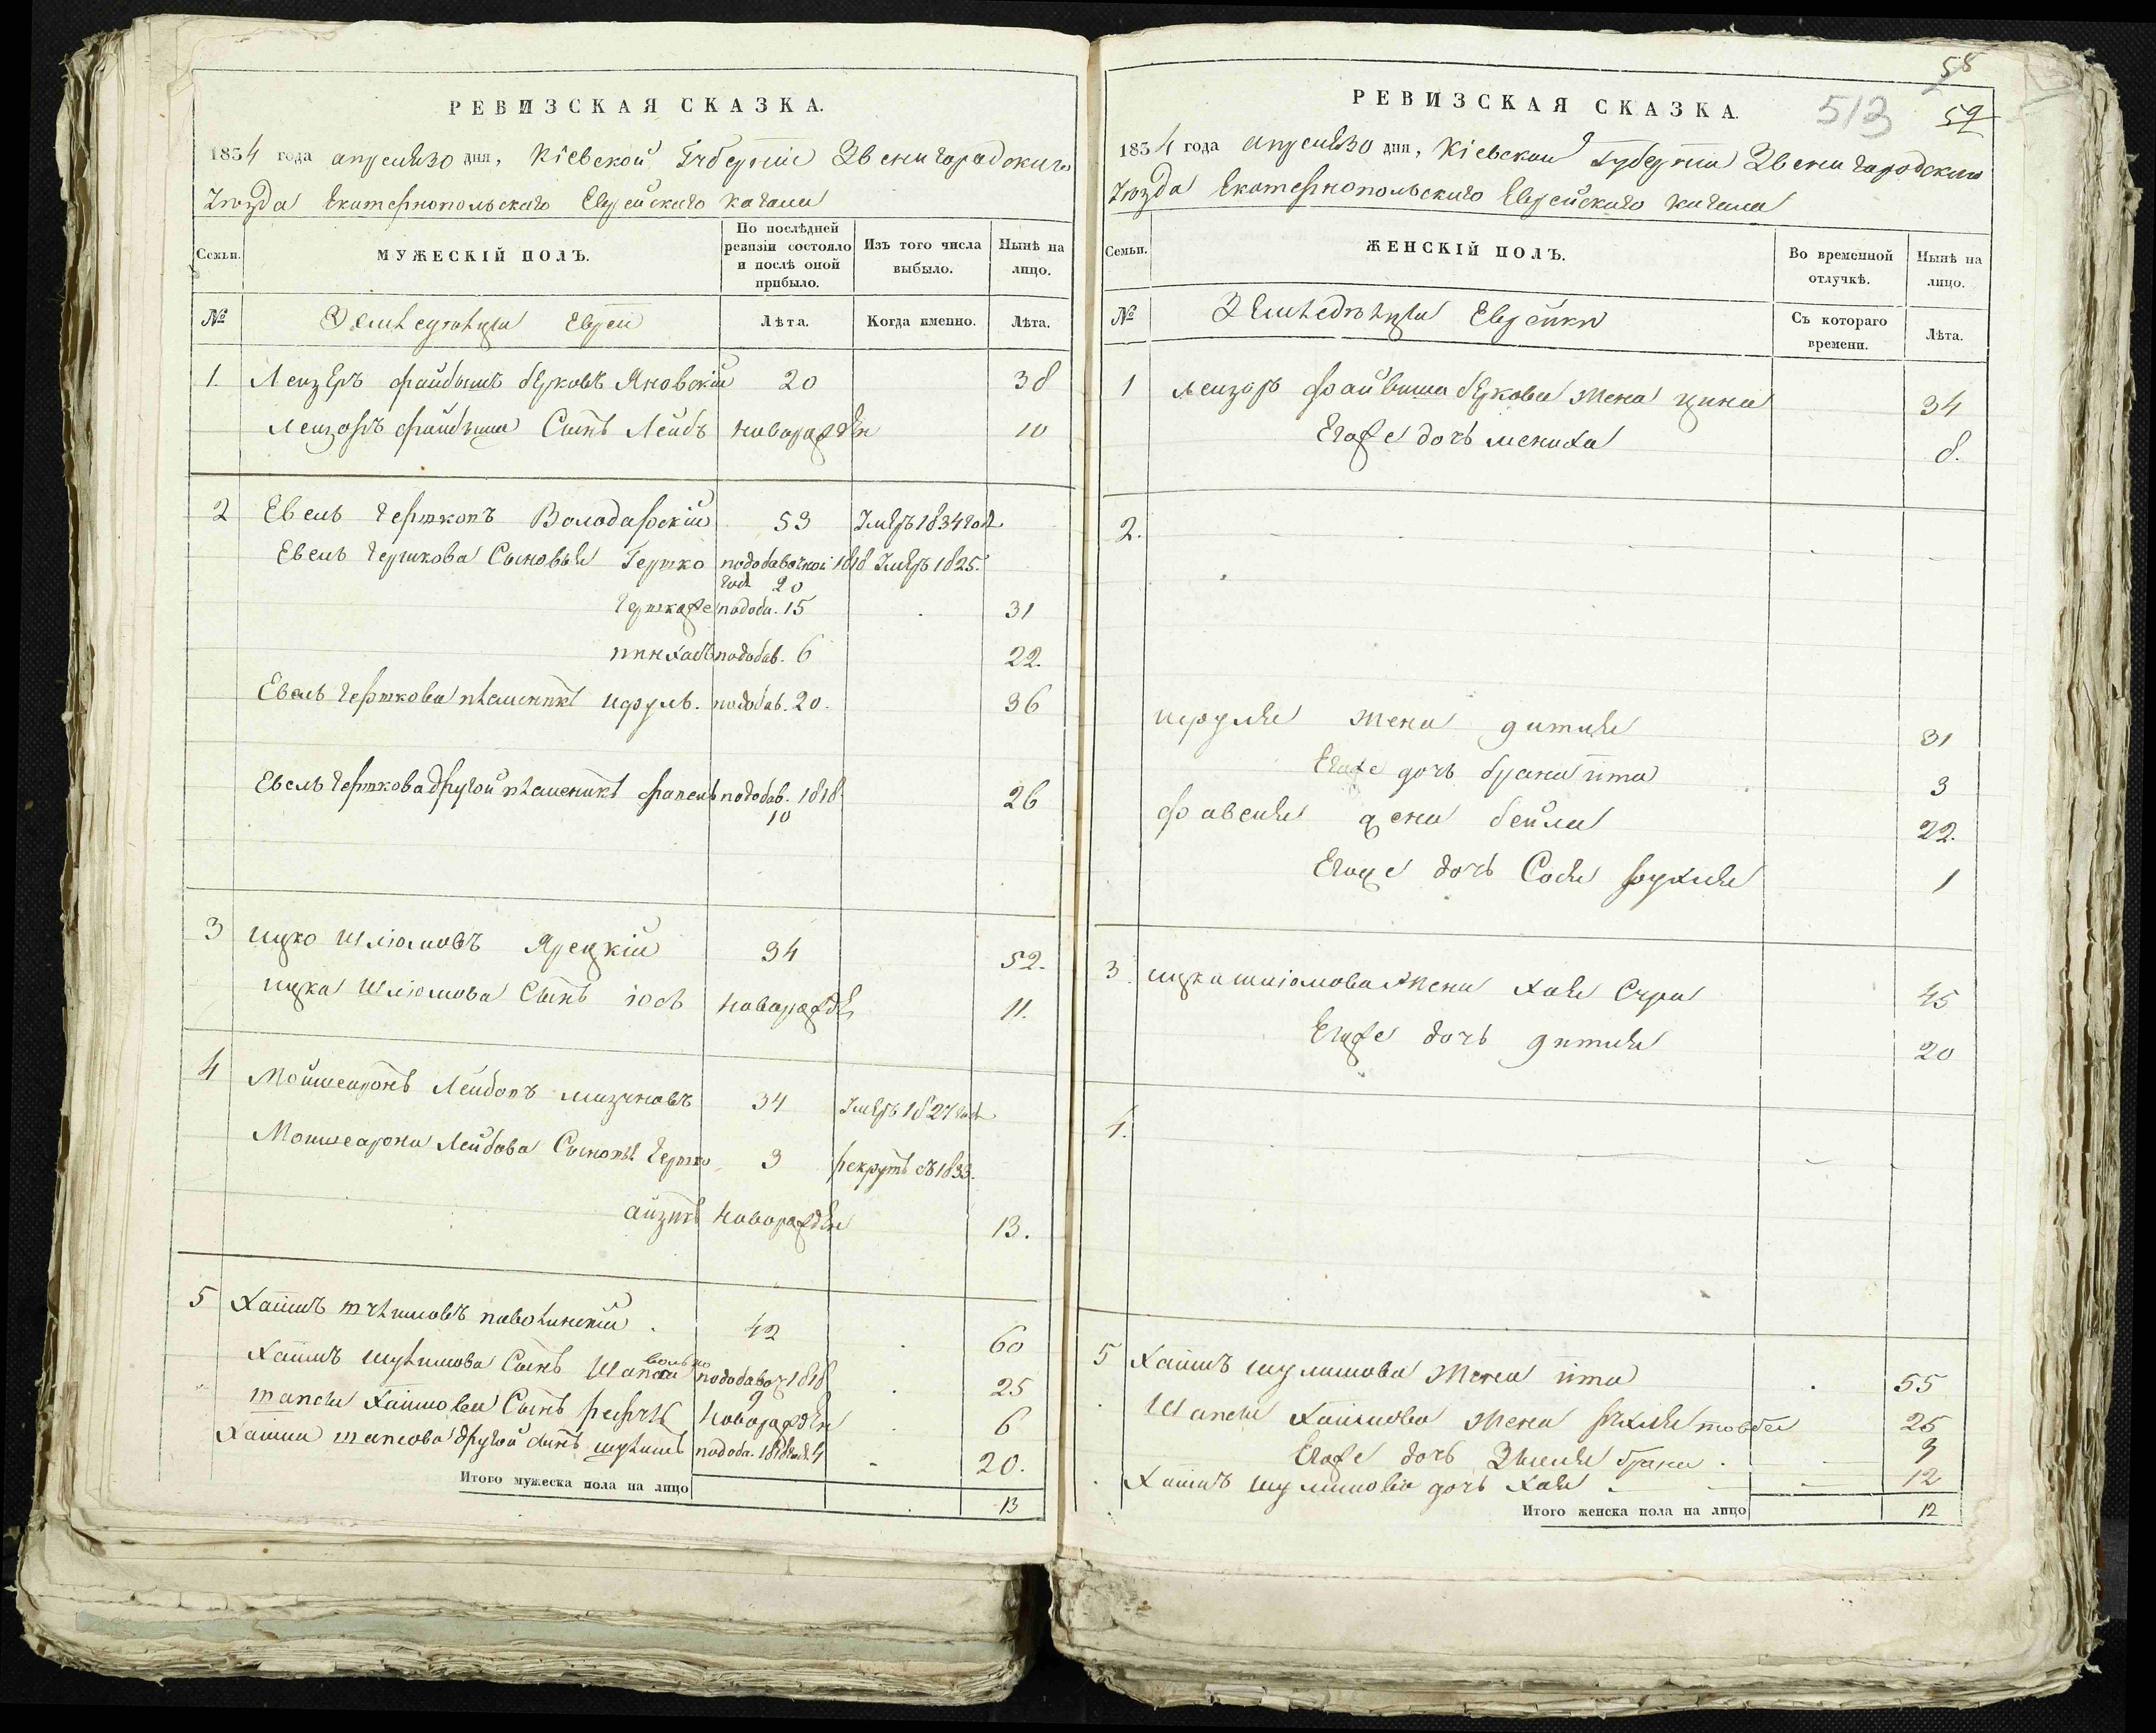 РЕВИЗСКАЯ СКАЗКА.
1834 года апреля 30 дня, Кіевской Губерніи Звенигородскаго
Уѣзда Екатеринопольскаго Еврейскаго кагала
Семьи.
МУЖЕСКІЙ ПОЛЪ.
По послѣдней ревизіи состояло и послѣ оной прибыло.
Изъ того числа выбыло.
Нынѣ на лицо.
№
Евреи
Лѣта.
Когда именно.
Лѣта.
1. Лейзеръ файвишъ берковъ Яновскій 20 38
Лейзоръ файвиша Сынъ Лейбъ новорожден 10
2 Евель гершковъ Володарскій 53 Умеръ 1834 год
Евель гершкова Сыновья Гершко подобавочной 1818 год 20 Умеръ 1825.
подоба. 15 31
пинхасъ подобав. 6 22.
Евель гершкова племеникъ подобав. 20. 36
Евель гершкова другой племеникъ подобав. 1818 10 26
3 ицко шліомовъ Ярецкій 34 52.
ицка шліомова Сынъ іосъ новорожде 11.
4 Мойшеаронъ Лейбовъ 34 Умеръ 1827 год
Мошшеарона Лейбова Сыновья гершко 3 рекрутъ съ 1833.
айзикъ новорожден 13.
5 Хаимъ 42 60
Хаимъ Сынъ подобавоч 1818 9 25
Хаимова Сынъ новорожден 6
Хаима другой сынъ подоба. 1818 год. 4 20.
Итого мужеска пола на лицо 13
58
513
59
РЕВИЗСКАЯ СКАЗКА.
1834 года апреля 30 дня, Кіевской Губерніи Звенигородскаго
Уѣзда Екатеринопольскаго Еврейскаго кагала
Семьи.
ЖЕНСКІЙ ПОЛЪ.
Во временной отлучкѣ.
Нынѣ на лицо.
№
Еврейки
Съ котораго времени.
Лѣта.
1 лейзоръ файвиша беркова жена цина 34
Егоже дочь менихa 8.
2.
жена 31
Егоже дочь брана ита 3
жена бейла 22.
Егоже дочь Сося рухля 1
3. ицка шліомова жена хая Сура 45
Егоже дочь 20
4.
5 Хаимъ шулимова жена ита 55
Хаимова жена 25
Егоже дочь брана 3
Хаимъ шулимова дочь хая 12
Итого женска пола на лицо 12